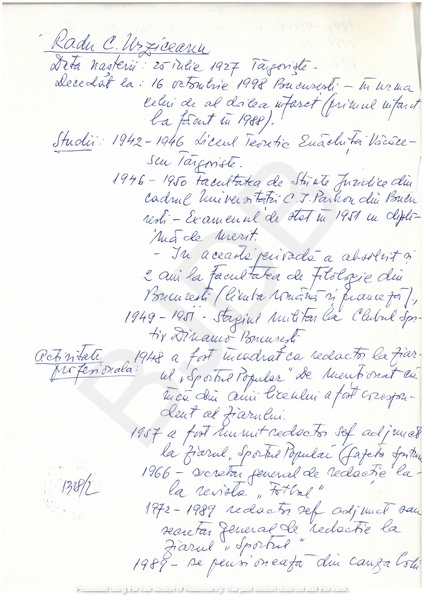 Radu C. Urziceanu
Data nașterii: 20 iulie 1927 Târgoviște.
Decedat la: 16 octombrie 1998 București – în urma
celui de al doilea infarct (primul infarct
l-a făcut în 1988).
Studii: 1942-1946 Liceul Teoretic Enăchiță Văcăre-
scu Târgoviște.
1946-1950 Facultatea de Științe Juridice din
cadrul Universității C. I. Parhon din Bucu-
rești – Examenul de stat în 1951 cu diplo-
mă de merit.
– In această perioadă a absolvit și
2 ani la facultatea de filologie din
București (limba română și franceză),
1949-1951 – Stagiul militar la Clubul Spo-
tiv Dinamo București
Activitate
profesională: 1948 a fost încadrat ca redactor la ziar-
ul „Sportul Popular" De menționat că
încă din anii liceului a fost corespon-
dent al ziarului.
1957 a fost numit redactor șef adjunct
la ziarul „Sportul Popular (gazeta
1966 – secretar general de redacție la-
la revista „Fotbal"
1972-1989 redactor șef adjunct sau
secretar general de redacție la
ziarul „Sportul"
1989 – se pensionează din cauza bolii
1328/2
RJDB